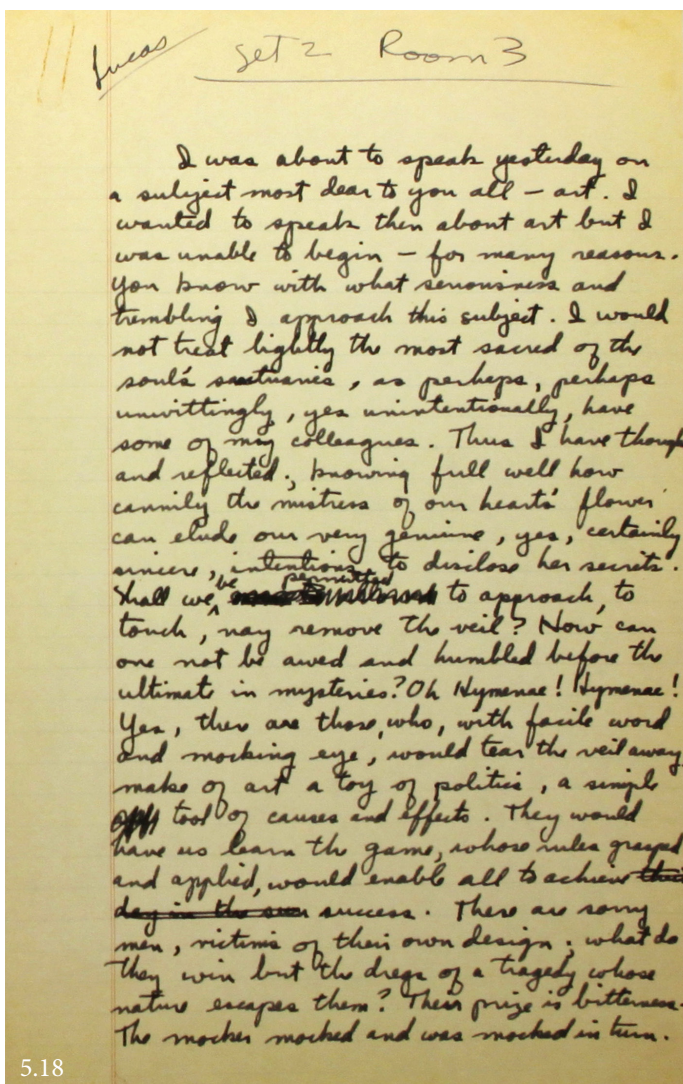 Lucas
Set 2 Room 3
I was about to speak yesterday on
a subject most dear to you all – art. I
wanted to speak then about art but I
was unable to begin – for many reasons.
You know with what seriousness and
trembling I approach this subject. I would
not treat lightly the most sacred of the
soul's sactuaries, as perhaps, perhaps
unwittingly, yes unintentionally, have
some of my colleagues. Thus I have though
and reflected; knowing full well how
cannily the mistress of our hearts' flower
can elude our very genuine, yes, certainly
sincere, intentions to disclose her secrets.
Shall we be permitted to approach, to
touch, nay remove the veil? How can
one not be awed and humbled before the
ultimate in mysteries? Oh Hymenae! Hymenae!
Yes, ther are those, who, with facile word
and mocking eye, would tear the veil away,
make of art a toy of politics, a simple
tool of causes and effects. They would
have us learn the game, whose rules grasped
and applied, would enable all to achieve their
day in the sun success. These are sorry
men, victims of their own design; what do
they win but the dregs of a tragedy whose
nature escapes them? Their prize is bitterness.
The mocker mocked and was mocked in turn.
5.18